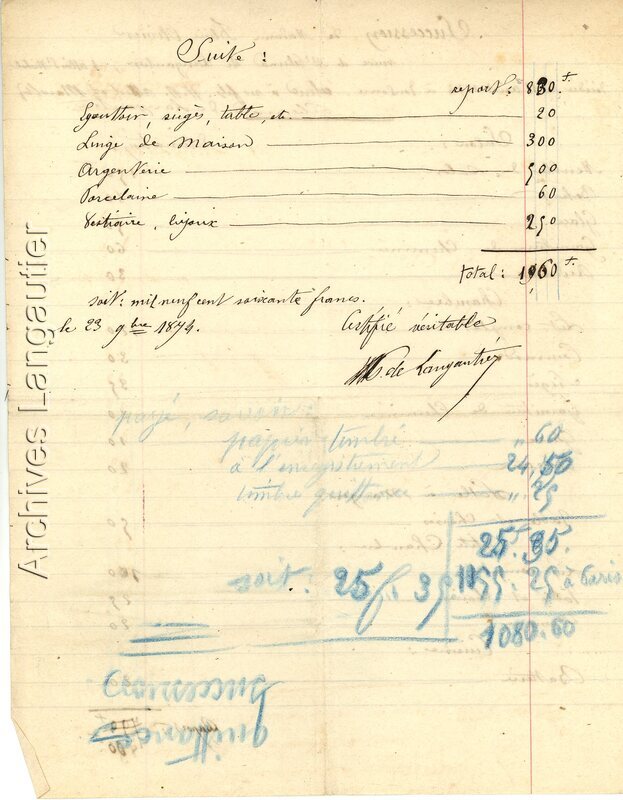 Suite :
report: 830.f
Egouttoir, sièges, table, etc. 20
Linge de Maison 300
Argenterie 500
Porcelaine 60
Vestiaire, bijoux 250
Total: 1960 f.
soit: mil neuf cent soixante francs.
le 23 9bre 1874. Certifié véritable
de Langautier
payé, savoir:
papier timbré " 60
à l'enregistrement 24,50
timbre quittance " 25
25f. 35.
soit: 25 f. 35 1055. 25 à Paris
1080.60
quittance
Archives Langautier